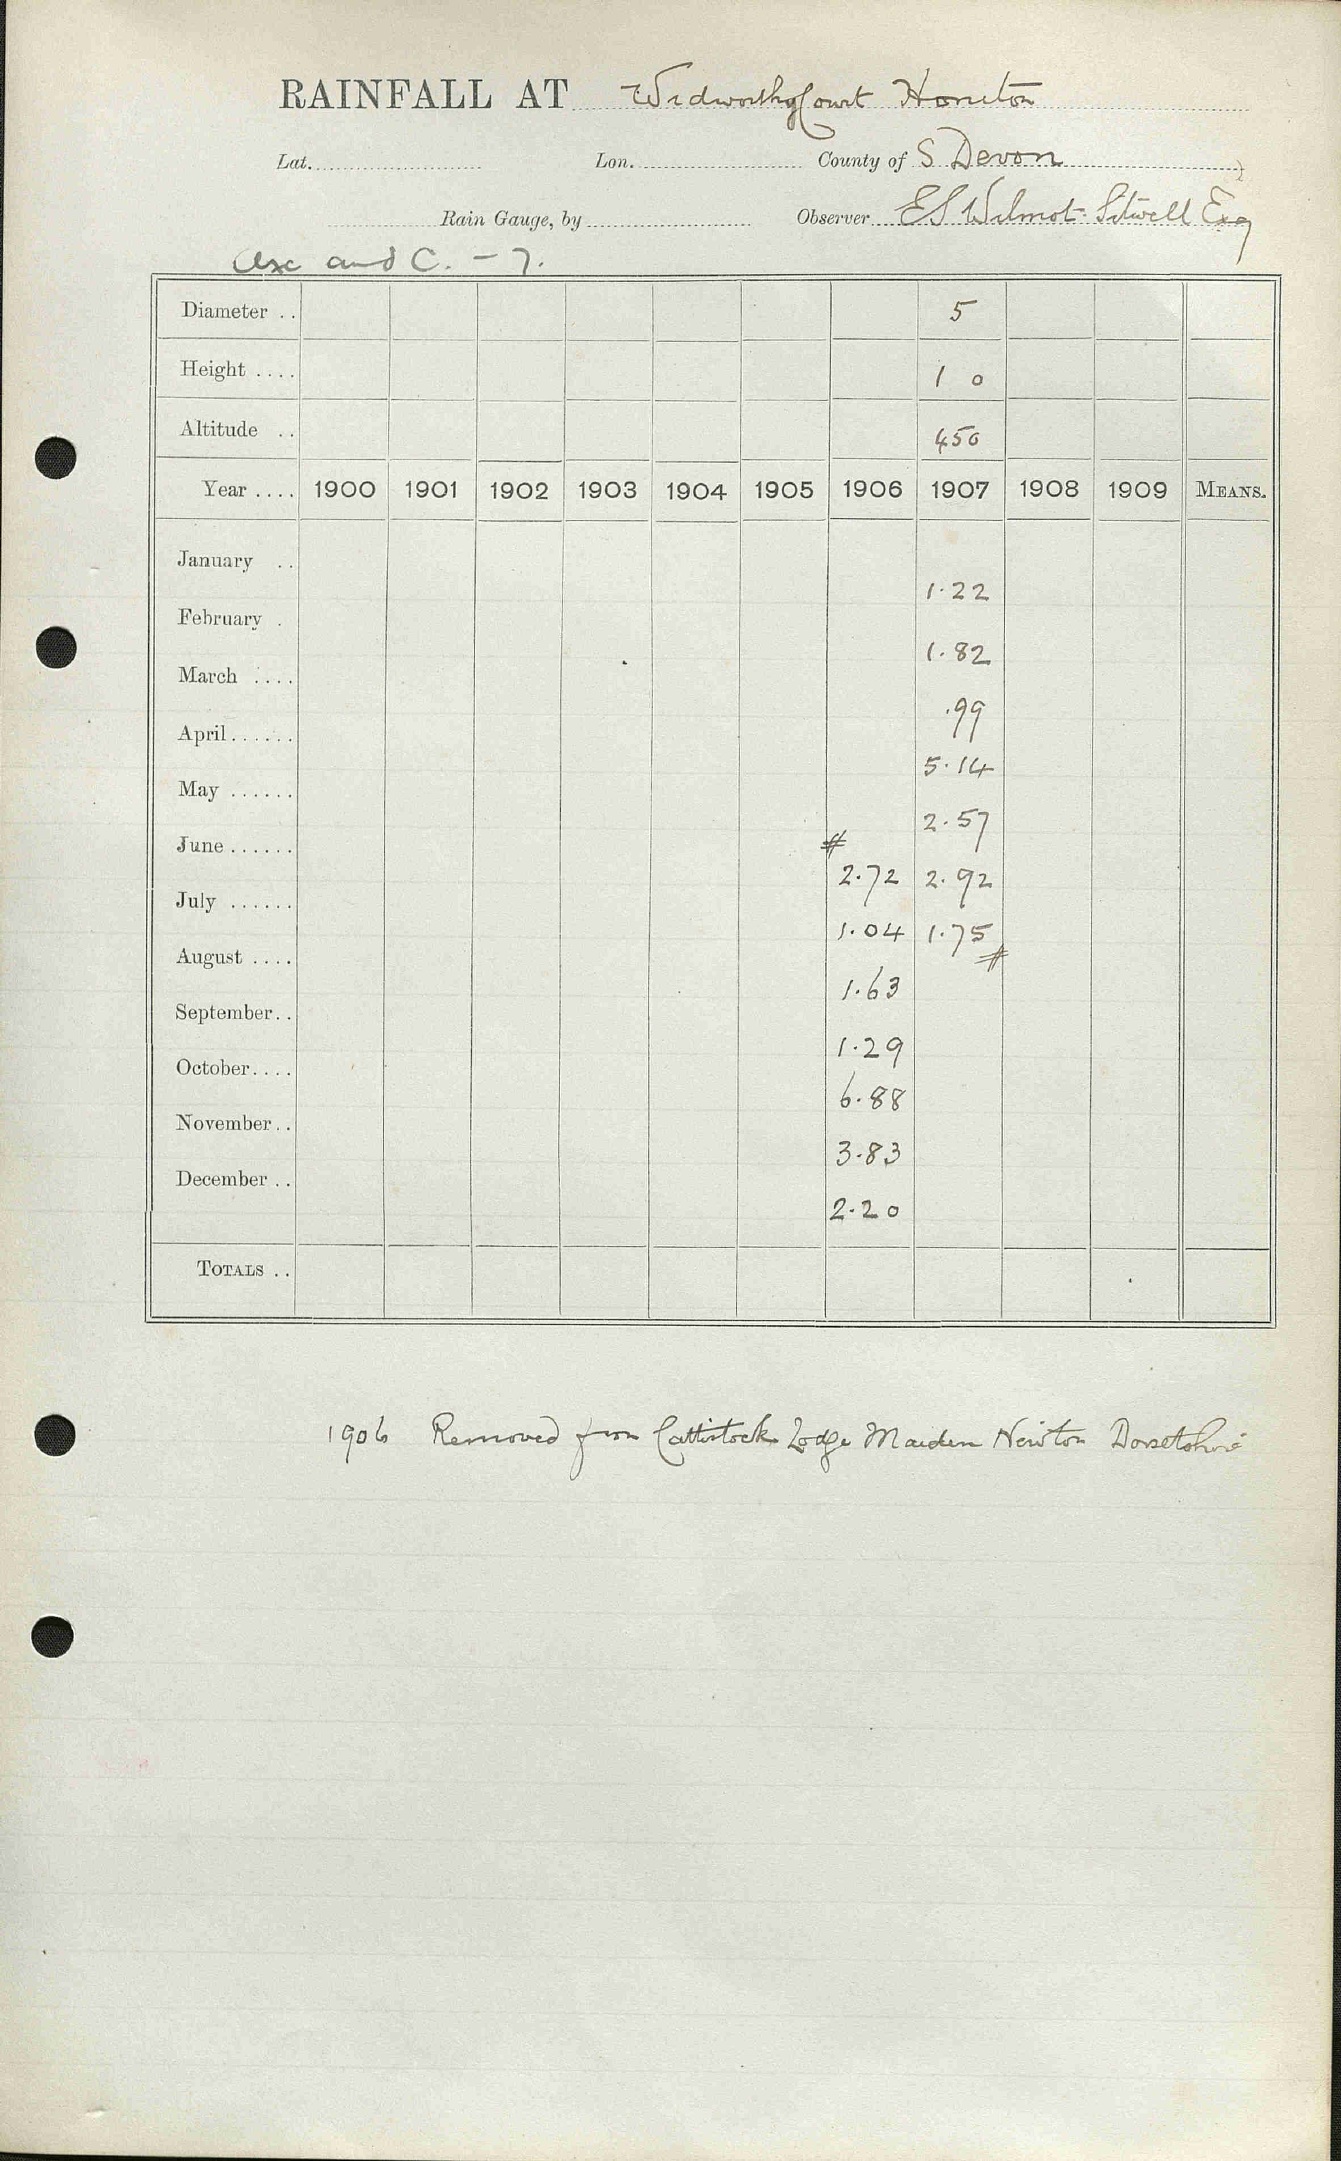 RAINFALL AT Widworthy Court Honiton
Lat. Lon. County of S Devon
Rain Gauge, by Observer E S Wilmot-Sitwell Esq
Axe and C. - 7.
Diameter .. 5
Height .... 1 0
Altitude .. 450
Year .... 1900 1901 1902 1903 1904 1905 1906 1907 1908 1909 MEANS.
January ..
1.22
February .
1.82
March ....
.99
April......
5.14
May ......
2.57
June ...... #
2.72 2.92
July ......
1.04 1.75
August .... #
1.63
September..
1.29
October....
6.88
November..
3.83
December ..
2.20
TOTALS ..
1906 Removed from Cattistock Lodge Maiden Newton Dorsetshire